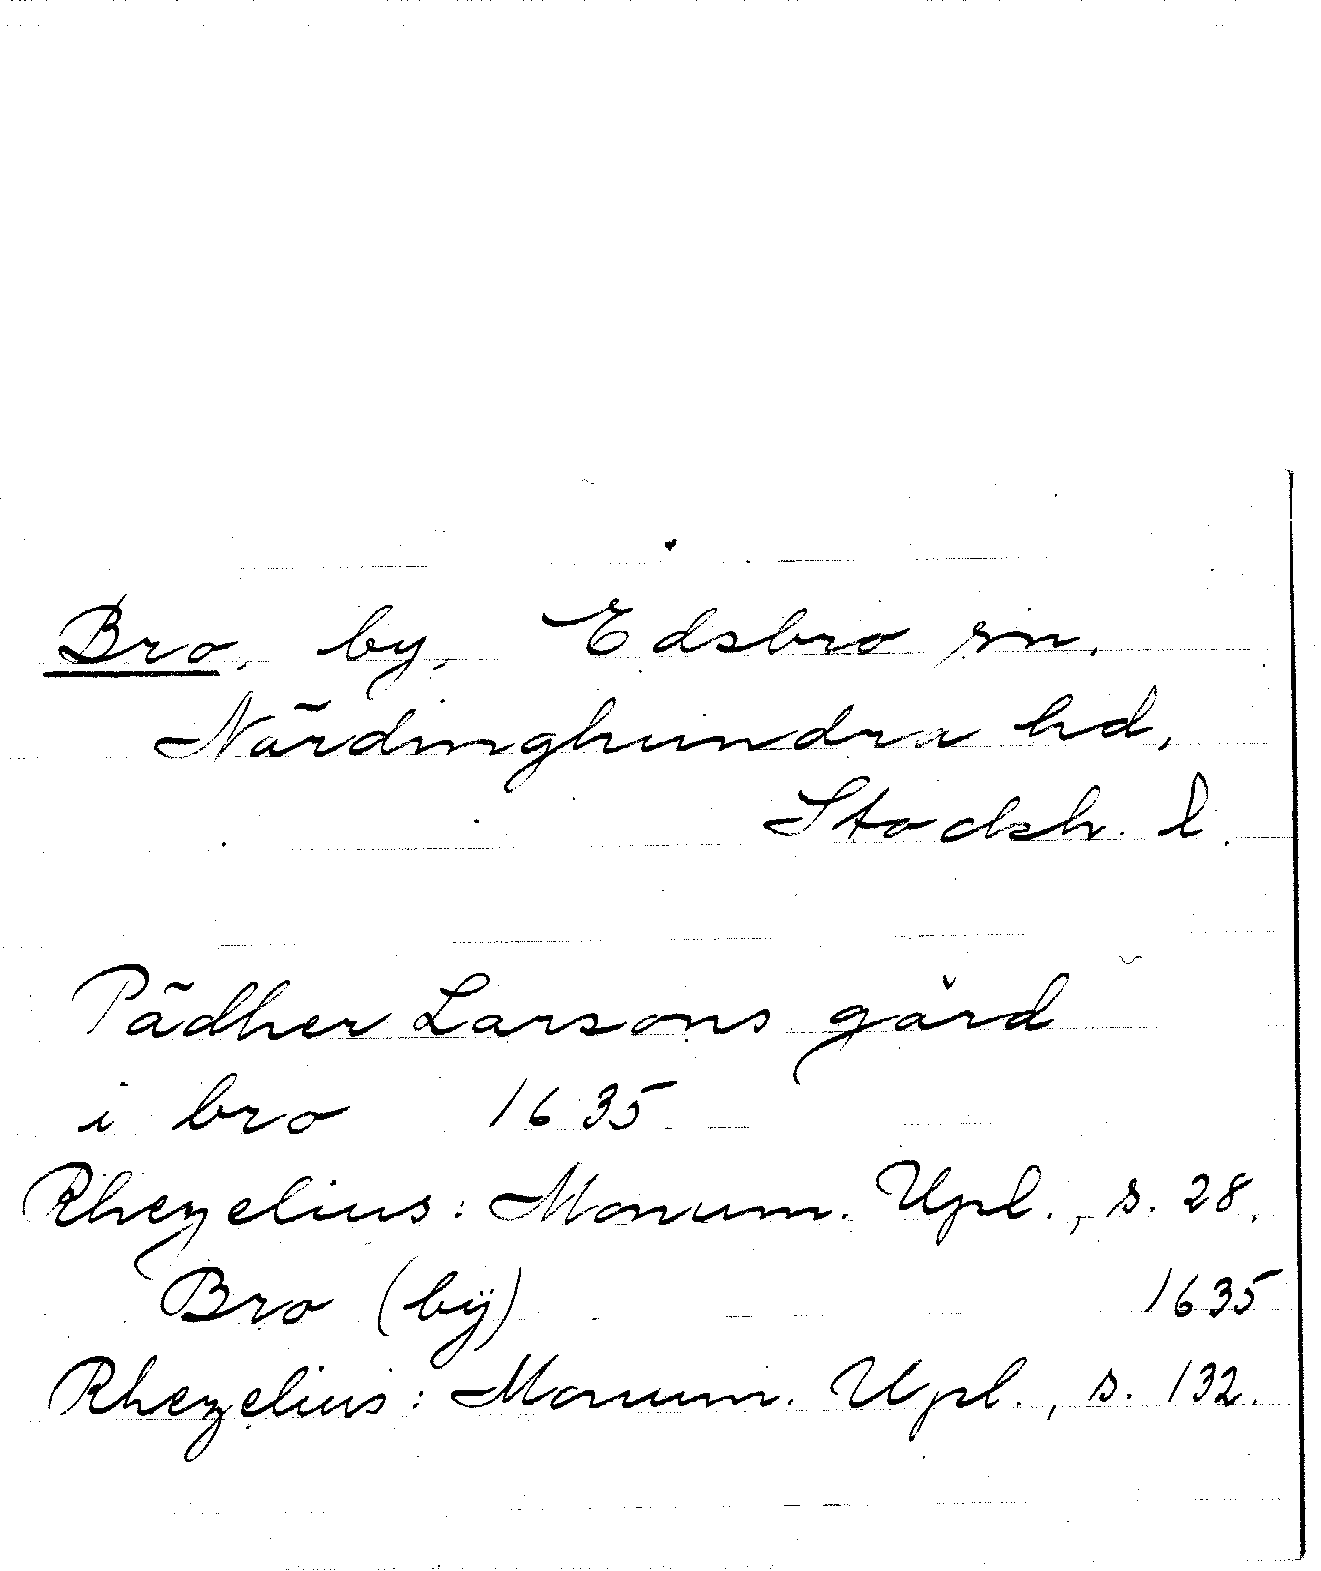 Bro, by, Edsbro sn,
Närdinghundra hd,
Stocksh. l.
Pädher Larsons gård
i bro 1635
Rhezelius: Monum. Upl., s. 28.
Bro (bÿ) 1635
Rhezelius: Monum. Upl., s. 132.